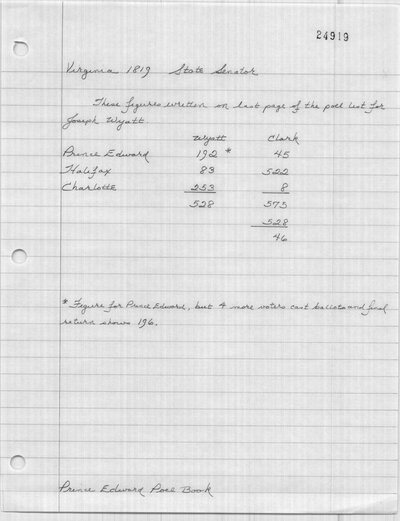 24919
Virginia 1819 State Senator
These figures written on last page of the poll list for
Joseph Wyatt
Wyatt Clark
Prince Edward 192 * 45
Halifax 83 522
Charlotte 253 8
528 575
528
46
* Figure for Prince Edward, but 4 more voters cast ballots and final
return shows 196.
Prince Edward Poll Book